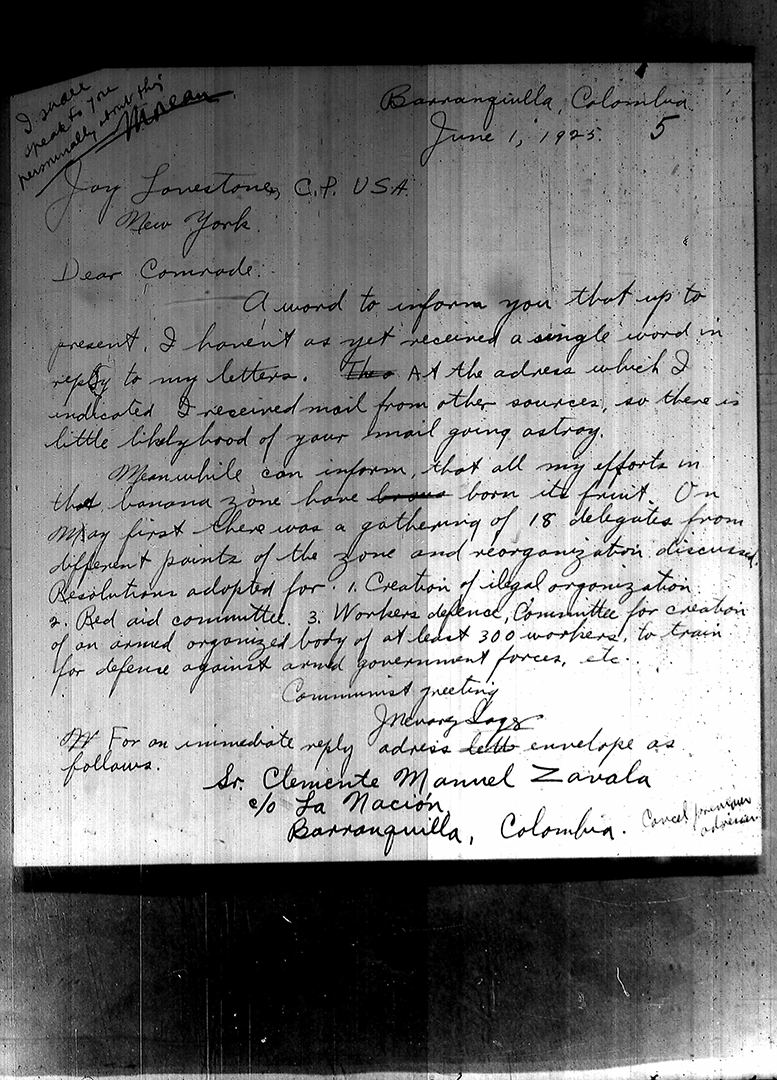 I shall
speak to you
personally about this
Barranqiulla, Colombia
June 1, 1925. 5
Jay Lovestone, C.P. USA
New York.
Dear Comrade.
A word to inform you that up to
present, I haven't as yet received a single word in
reply to my letters. At the adress which I
indicated I received mail from other sources, so there is
little likelyhood of your mail going astray.
Meanwhile can inform, that all my efforts in
that banana zone have born its fruit. On
May first there was a gathering of 18 delegates from
different points of the zone and reorganization discussed.
Resolutions adopted for. 1. Creation of ilegal organization
2. Red aid committee. 3. Workers defence, Committee for creation
of an armed organized body of at least 300 workers, to train
for defense against armd government forces, etc.
Communist greeting
For an immediate reply adress envelope as
follows.
Sr. Clemente Manuel Zavala
c/o La Nación,
Barranquilla, Colombia.
Cancel